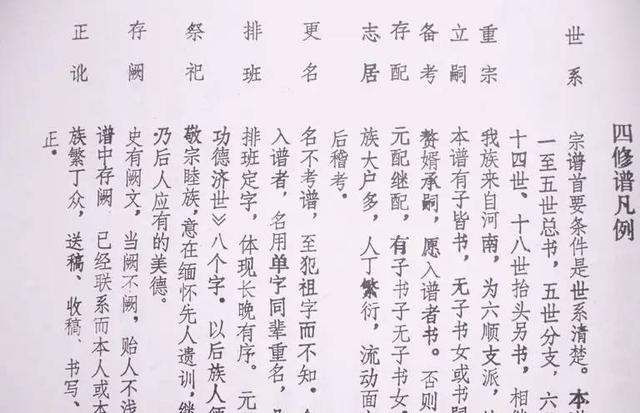 四修谱凡例
世系 宗谱首要条件是世系清楚。本
一至五世总书，五世分支，六
十四世、十八世抬头另书，相
重宗 我族来自河南，为六顺支派，
立嗣 本谱有子皆书，无子书女或书
备考 赘婿承嗣，愿入谱者书。否则
存配 元配继配，有子书子无子书女。
志居 族大户多，人丁繁衍，流动面
后稽考。
更名 名不考谱，至犯祖字而不知。
入谱者，名用单字同辈重名，
排班 排班定字，体现长晚有序。元
功德济世》八个字。以后族人
祭祀 敬宗睦族，意在缅怀先人遗训，继
乃后人应有的美德。
存阙 史有阙文，当阙不阙，贻人不浅
谱中存阙 已经联系而本人或本
正讹 族繁丁众，送稿、收稿、书写、
正。